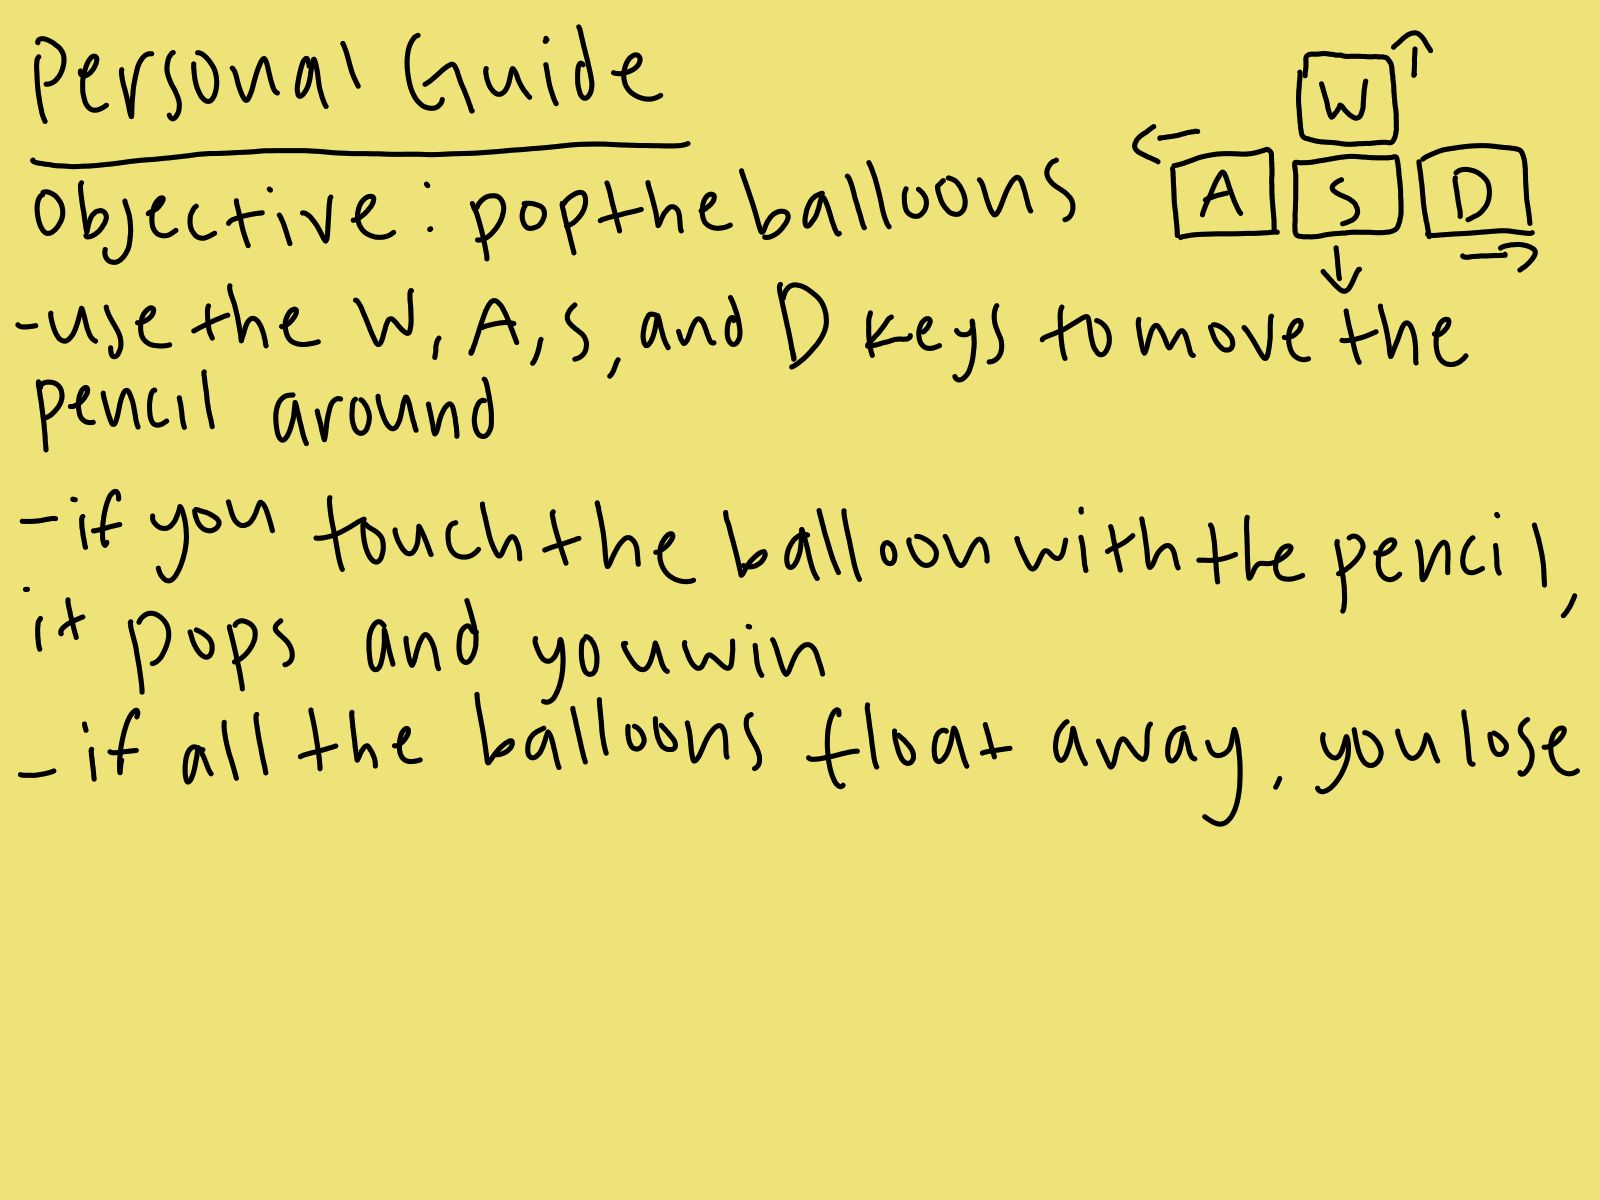 Personal Guide
W
A S D
objective: pop the balloons
-use the W, A, S, and D keys to move the
pencil around
-if you touch the balloon with the pencil,
it pops and you win
-if all the balloons float away, you lose